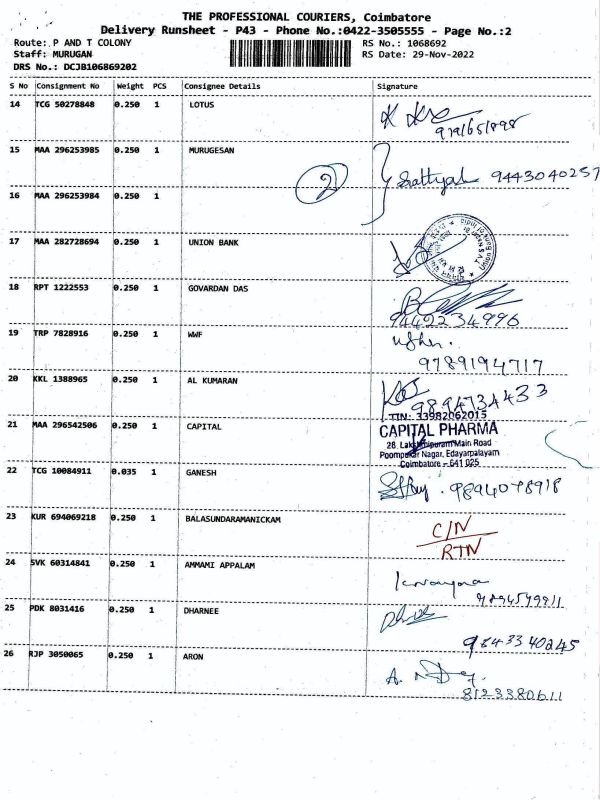 THE PROFESSIONAL COURIERS, Coimbatore
Delivery Runsheet - P43 - Phone No.:0422-3505555 - Page No.:2
Route: P AND T COLONY RS No.: 1068692
Staff: MURUGAN RS Date: 29-Nov-2022
DRS No.: DCJB106869202
S No Consignment No Weight PCS Consignee Details Signature
14 TCG 50278848 0.250 1 LOTUS
15 MAA 296253985 0.250 1 MURUGESAN
2 9443040257
16 MAA 296253984 0.250 1
17 MAA 282728694 0.250 1 UNION BANK
18 RPT 1222553 0.250 1 GOVARDAN DAS
9442234996
19 TRP 7828916 0.250 1 WWF
9789194717
20 KKL 1388965 0.250 1 AL KUMARAN
9894734433
TIN: 33982062015
21 MAA 296542506 0.250 1 CAPITAL CAPITAL PHARMA
28, Lakshmipuram Main Road
Poompukar Nagar, Edayarpalayam
Coimbatore - 641 025
22 TCG 10084911 0.035 1 GANESH
9894078918
23 KUR 694069218 0.250 1 BALASUNDARAMANICKAM C/N
RTN
24 SVK 60314841 0.250 1 AMMAMI APPALAM
25 PDK 8031416 0.250 1 DHARNEE
9843340245
26 RJP 3050065 0.250 1 ARON
8123380611